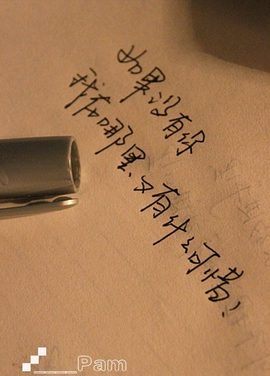 如果没有你
我在哪里又有什么可惜！
Pam